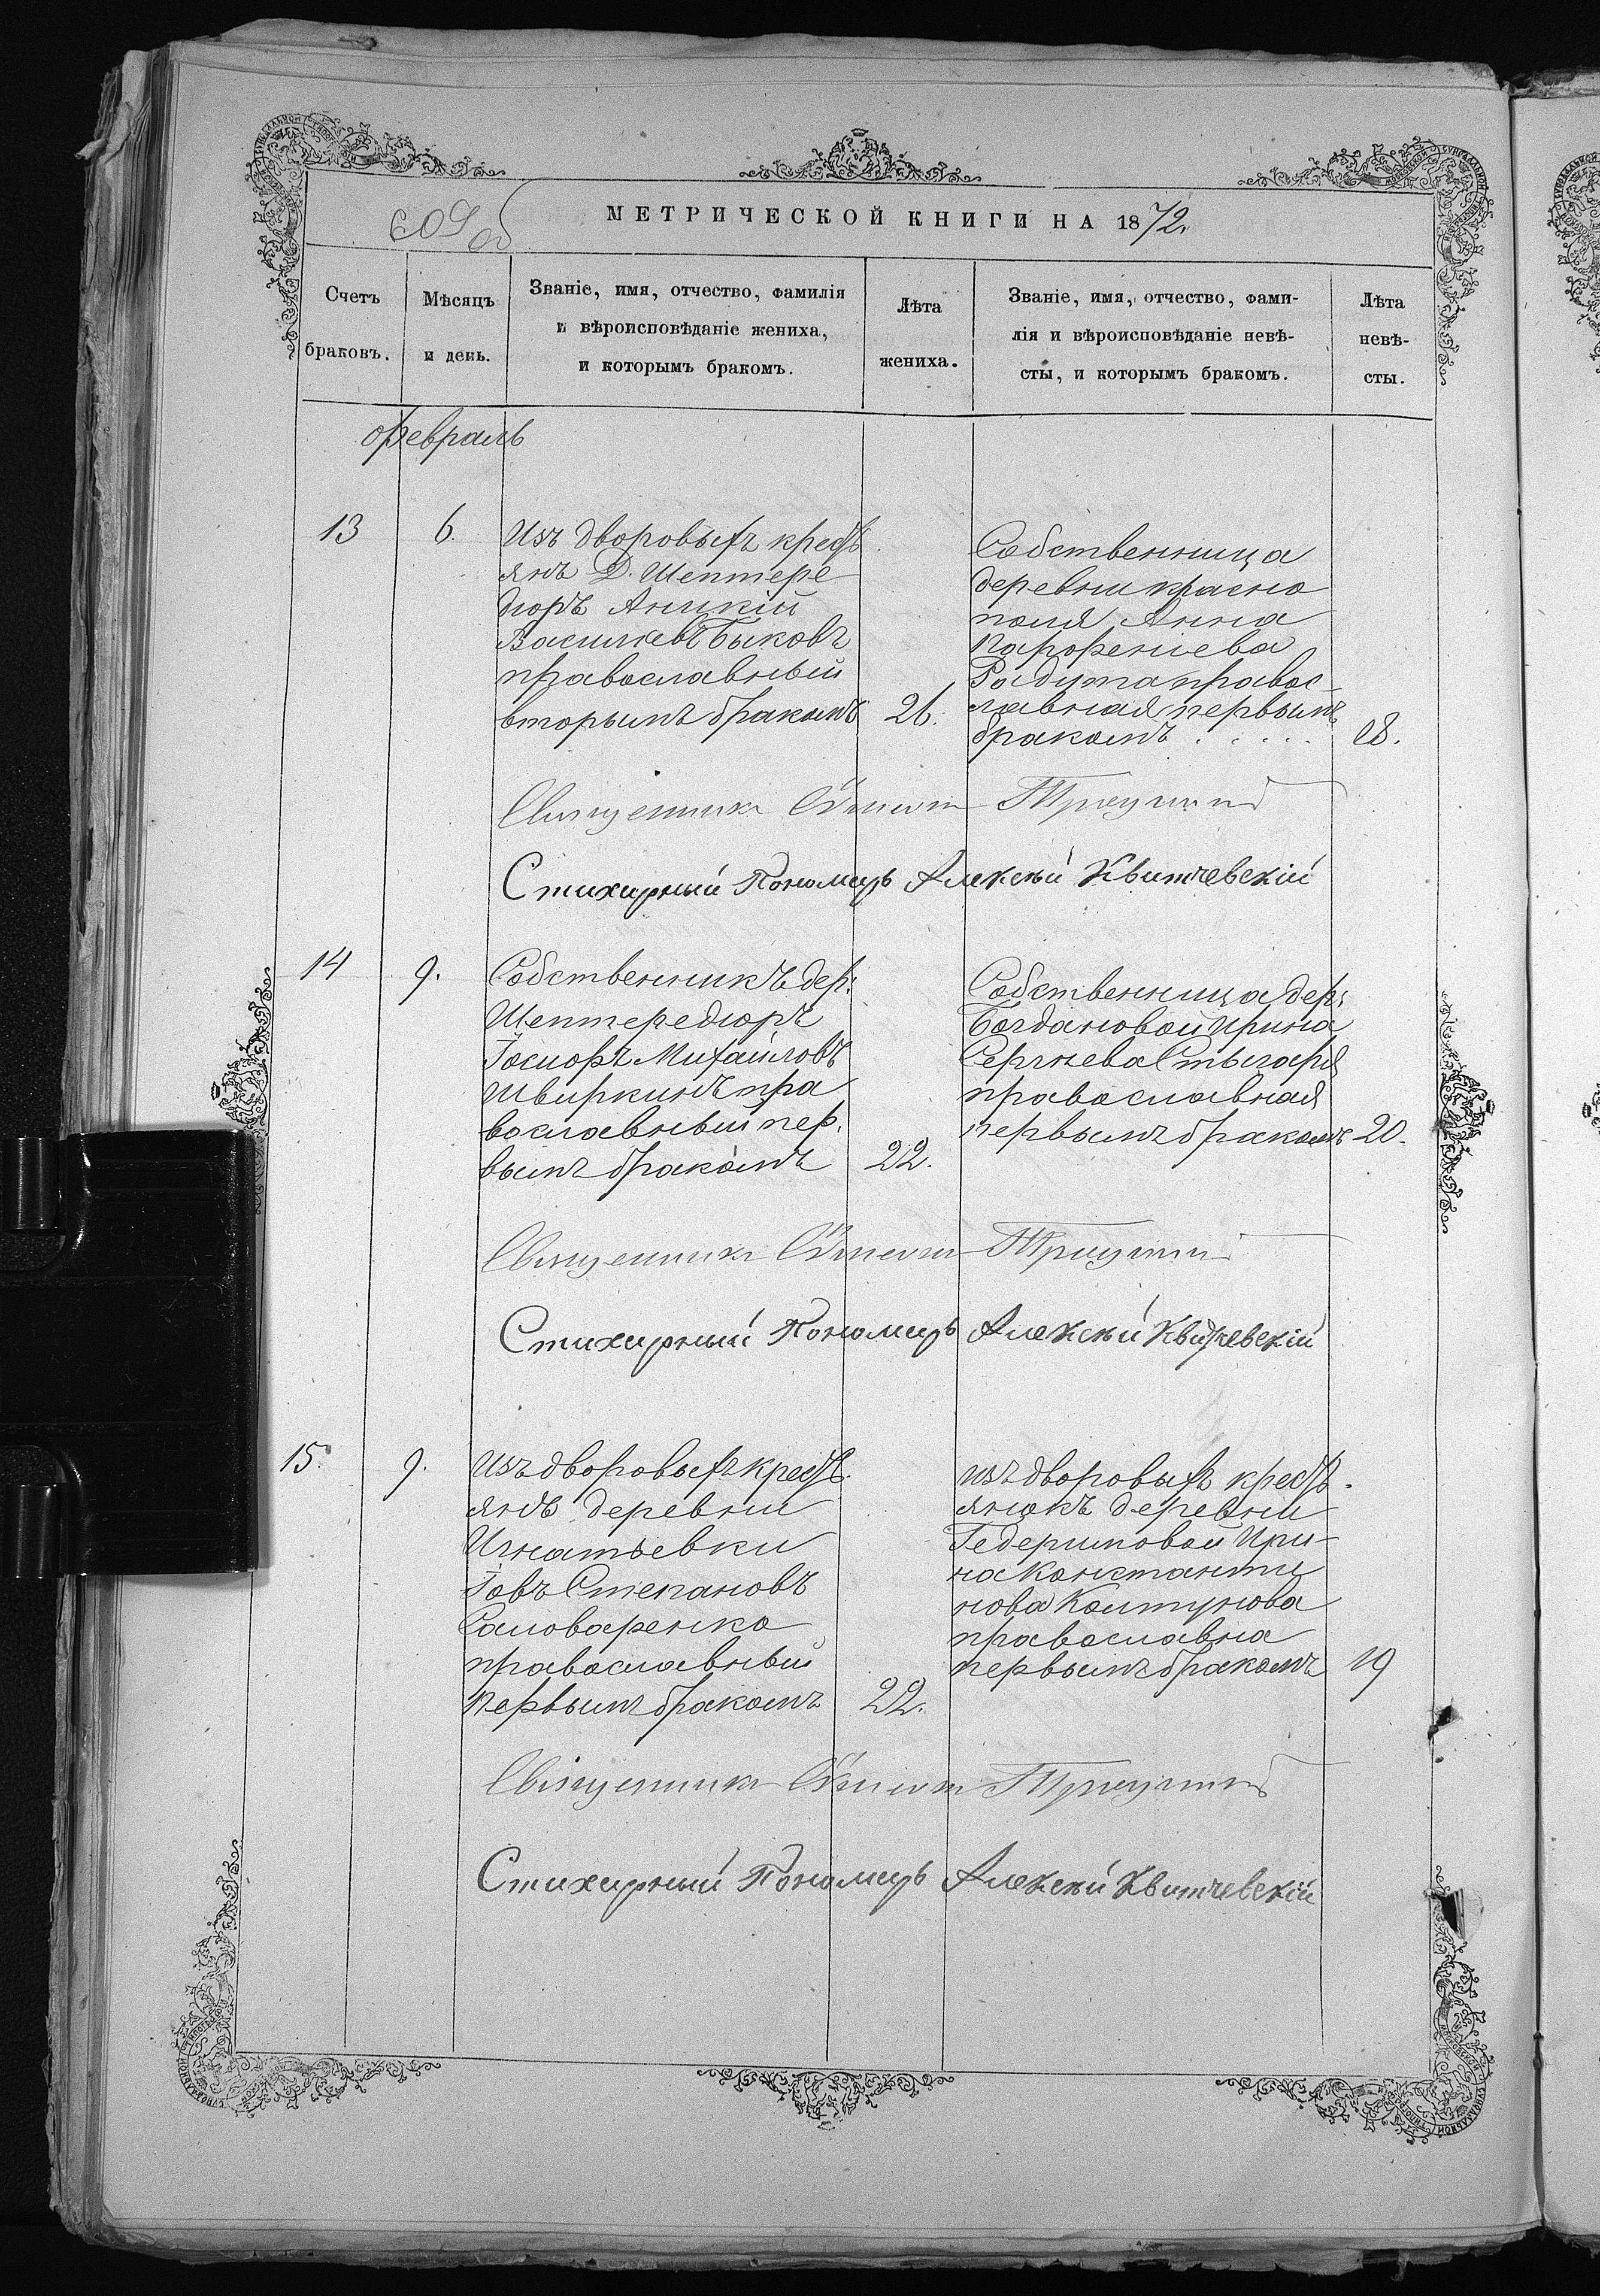 609 об
МЕТРИЧЕСКОЙ КНИГИ НА 1872.
Счетъ браковъ.
Мѣсяцъ и день.
Званіе, имя, отчество, фамилія
и вѣроисповѣданіе жениха,
и которымъ бракомъ.
Лѣта
жениха.
Званіе, имя, отчество, фами-
лія и вѣроисповѣданіе невѣ-
сты, и которымъ бракомъ.
Лѣта
невѣ-
сты.
Февраль
13
6.
Изъ дворовыхъ кресть
янъ Д. Шептере
дюръ
Васильевъ Быковъ
православный
вторымъ бракомъ
26.
Собственница
деревни красно
поля Анна
Парфеніева
Радута правос-
лавная первымъ
бракомъ . . . . .
18.
Священникъ
Стихирный Пономарь Алексѣй Квитчевскій
14
9.
Собственникъ дер.
Шептередюръ
Іосифъ Михайловъ
Швиркинъ пра
вославный пер.
вымъ бракомъ
22.
Собственница дер.
Богдановой Ирина
Сергѣева
православная
первымъ бракомъ
20.
Священникъ
Стихирный Пономарь Алексѣй Квитчевскій
15
9.
Изъ дворовыхъ кресть.
янъ деревни
Игнатьевки
Іовъ Степановъ
Саловаренко
православный
первымъ бракомъ
22.
изъ дворовыхъ кресть.
янокъ деревни
Гедеримовой Ири-
на Константи
нова Колтунова
православна
первымъ бракомъ
19
Священникъ
Стихирный Пономарь Алексѣй Квитчевскій